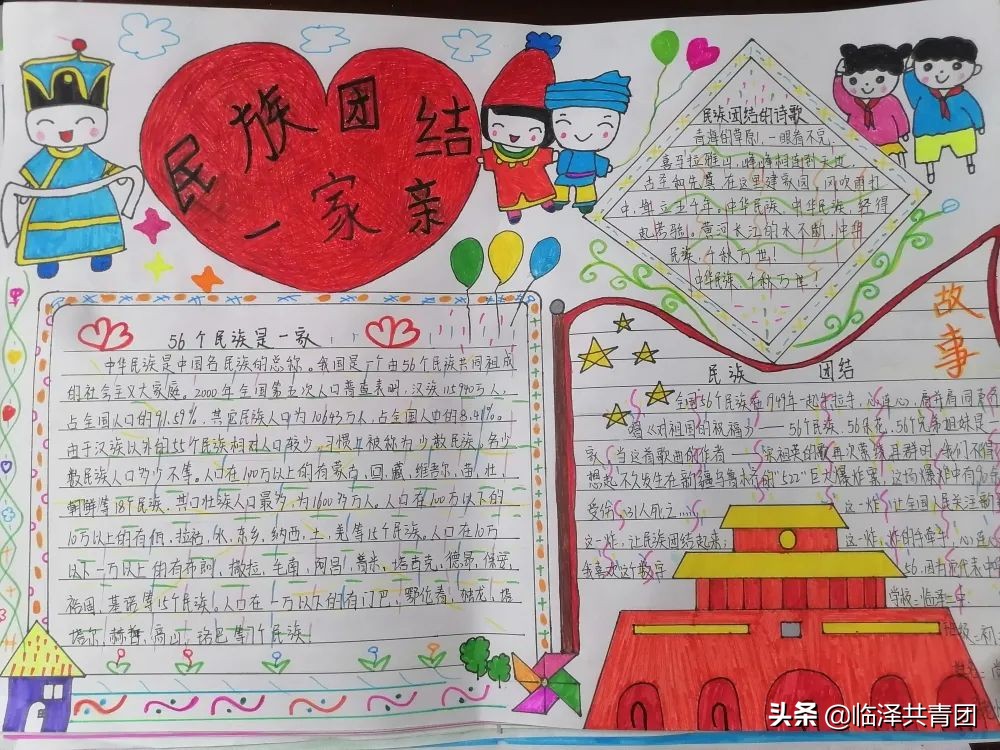 民族团结
一家亲
民族团结的诗歌
青海的草原,一眼看不完,
喜马拉雅山,峰峰相连到天边,
古圣和先贤,在这里建家园,风吹雨打
中,耸立五千年,中华民族,中华民族,经得
起考验。黄河长江的水不断,中华
民族,千秋万世!
中华民族,千秋万世!
56个民族是一家
中华民族是中国各民族的总称。我国是一个由56个民族共同组成
的社会主义大家庭。2000年全国第五次人口普查表明,汉族115940万人,
占全国人口的91.59%,其它民族人口为10643万人,占全国人口的8.41%。
由于汉族以外的55个民族相对人口较少,习惯上被称为少数民族。各少
数民族人口多少不等。人口在100万以上的有蒙古,回,藏,维吾尔,苗,壮,
朝鲜等18个民族,其中壮族人口最多,为1600多万人。人口在100万以下的
10万以上的有佤,拉祜,水,东乡,纳西,土,羌等15个民族。人口在10万
以下一万以上的有布朗,撒拉,毛南,阿昌,普米,塔吉克,德昂,保安,
裕固,基诺等15个民族。人口在一万以下的有门巴,鄂伦春,独龙,塔
塔尔,赫哲,高山,珞巴等7个民族
故事
民族 团结
全国56个民族在1949年一起手拉手,心连心,肩并肩同
唱《对祖国的祝福》——56个民族,56朵花,56个兄弟姐妹是一
家,当这首歌曲的作者——宋祖英的歌再次萦绕耳群时,我们不得
想起不久发生在新疆乌鲁木齐的"522"巨大爆炸案,这场爆炸中有
受伤,31人死亡…… 这一炸,让全国人民关注
这一炸,让民族团结起来; 这一炸,炸的手牵手,心连
我喜欢这个数字 56,因为它代表中
学校:临泽
班级:初
头条 @临泽共青团